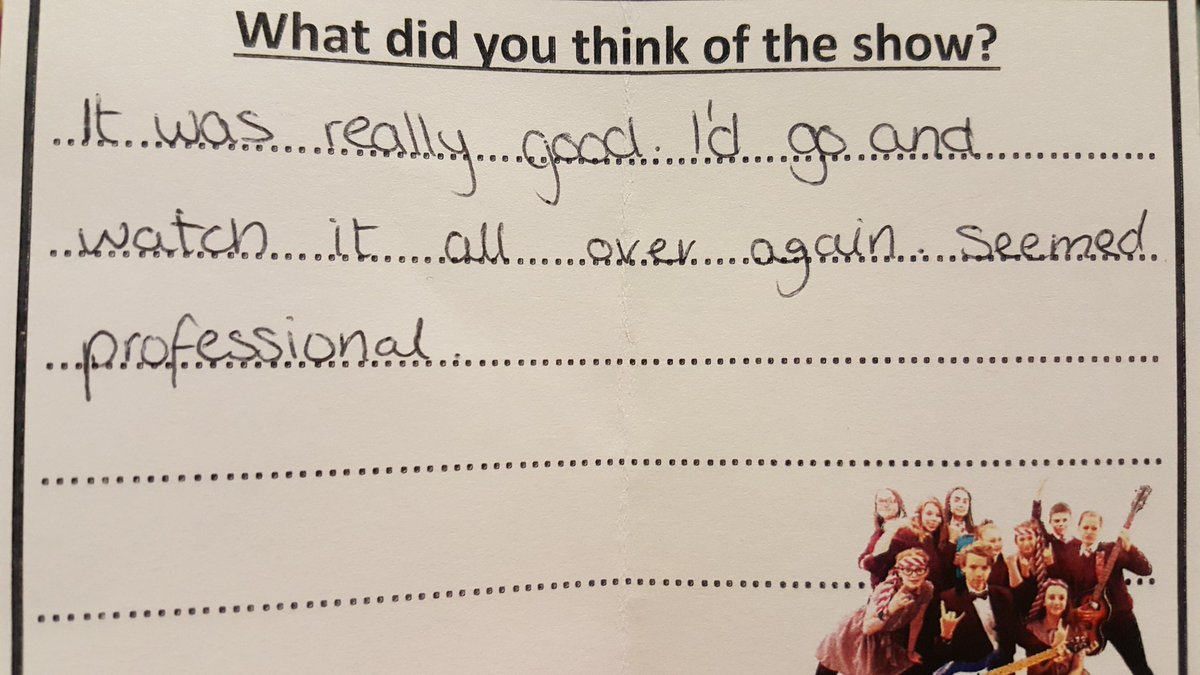 What did you think of the show?
It was really good. I'd go and
watch it all over again. Seemed
professional.